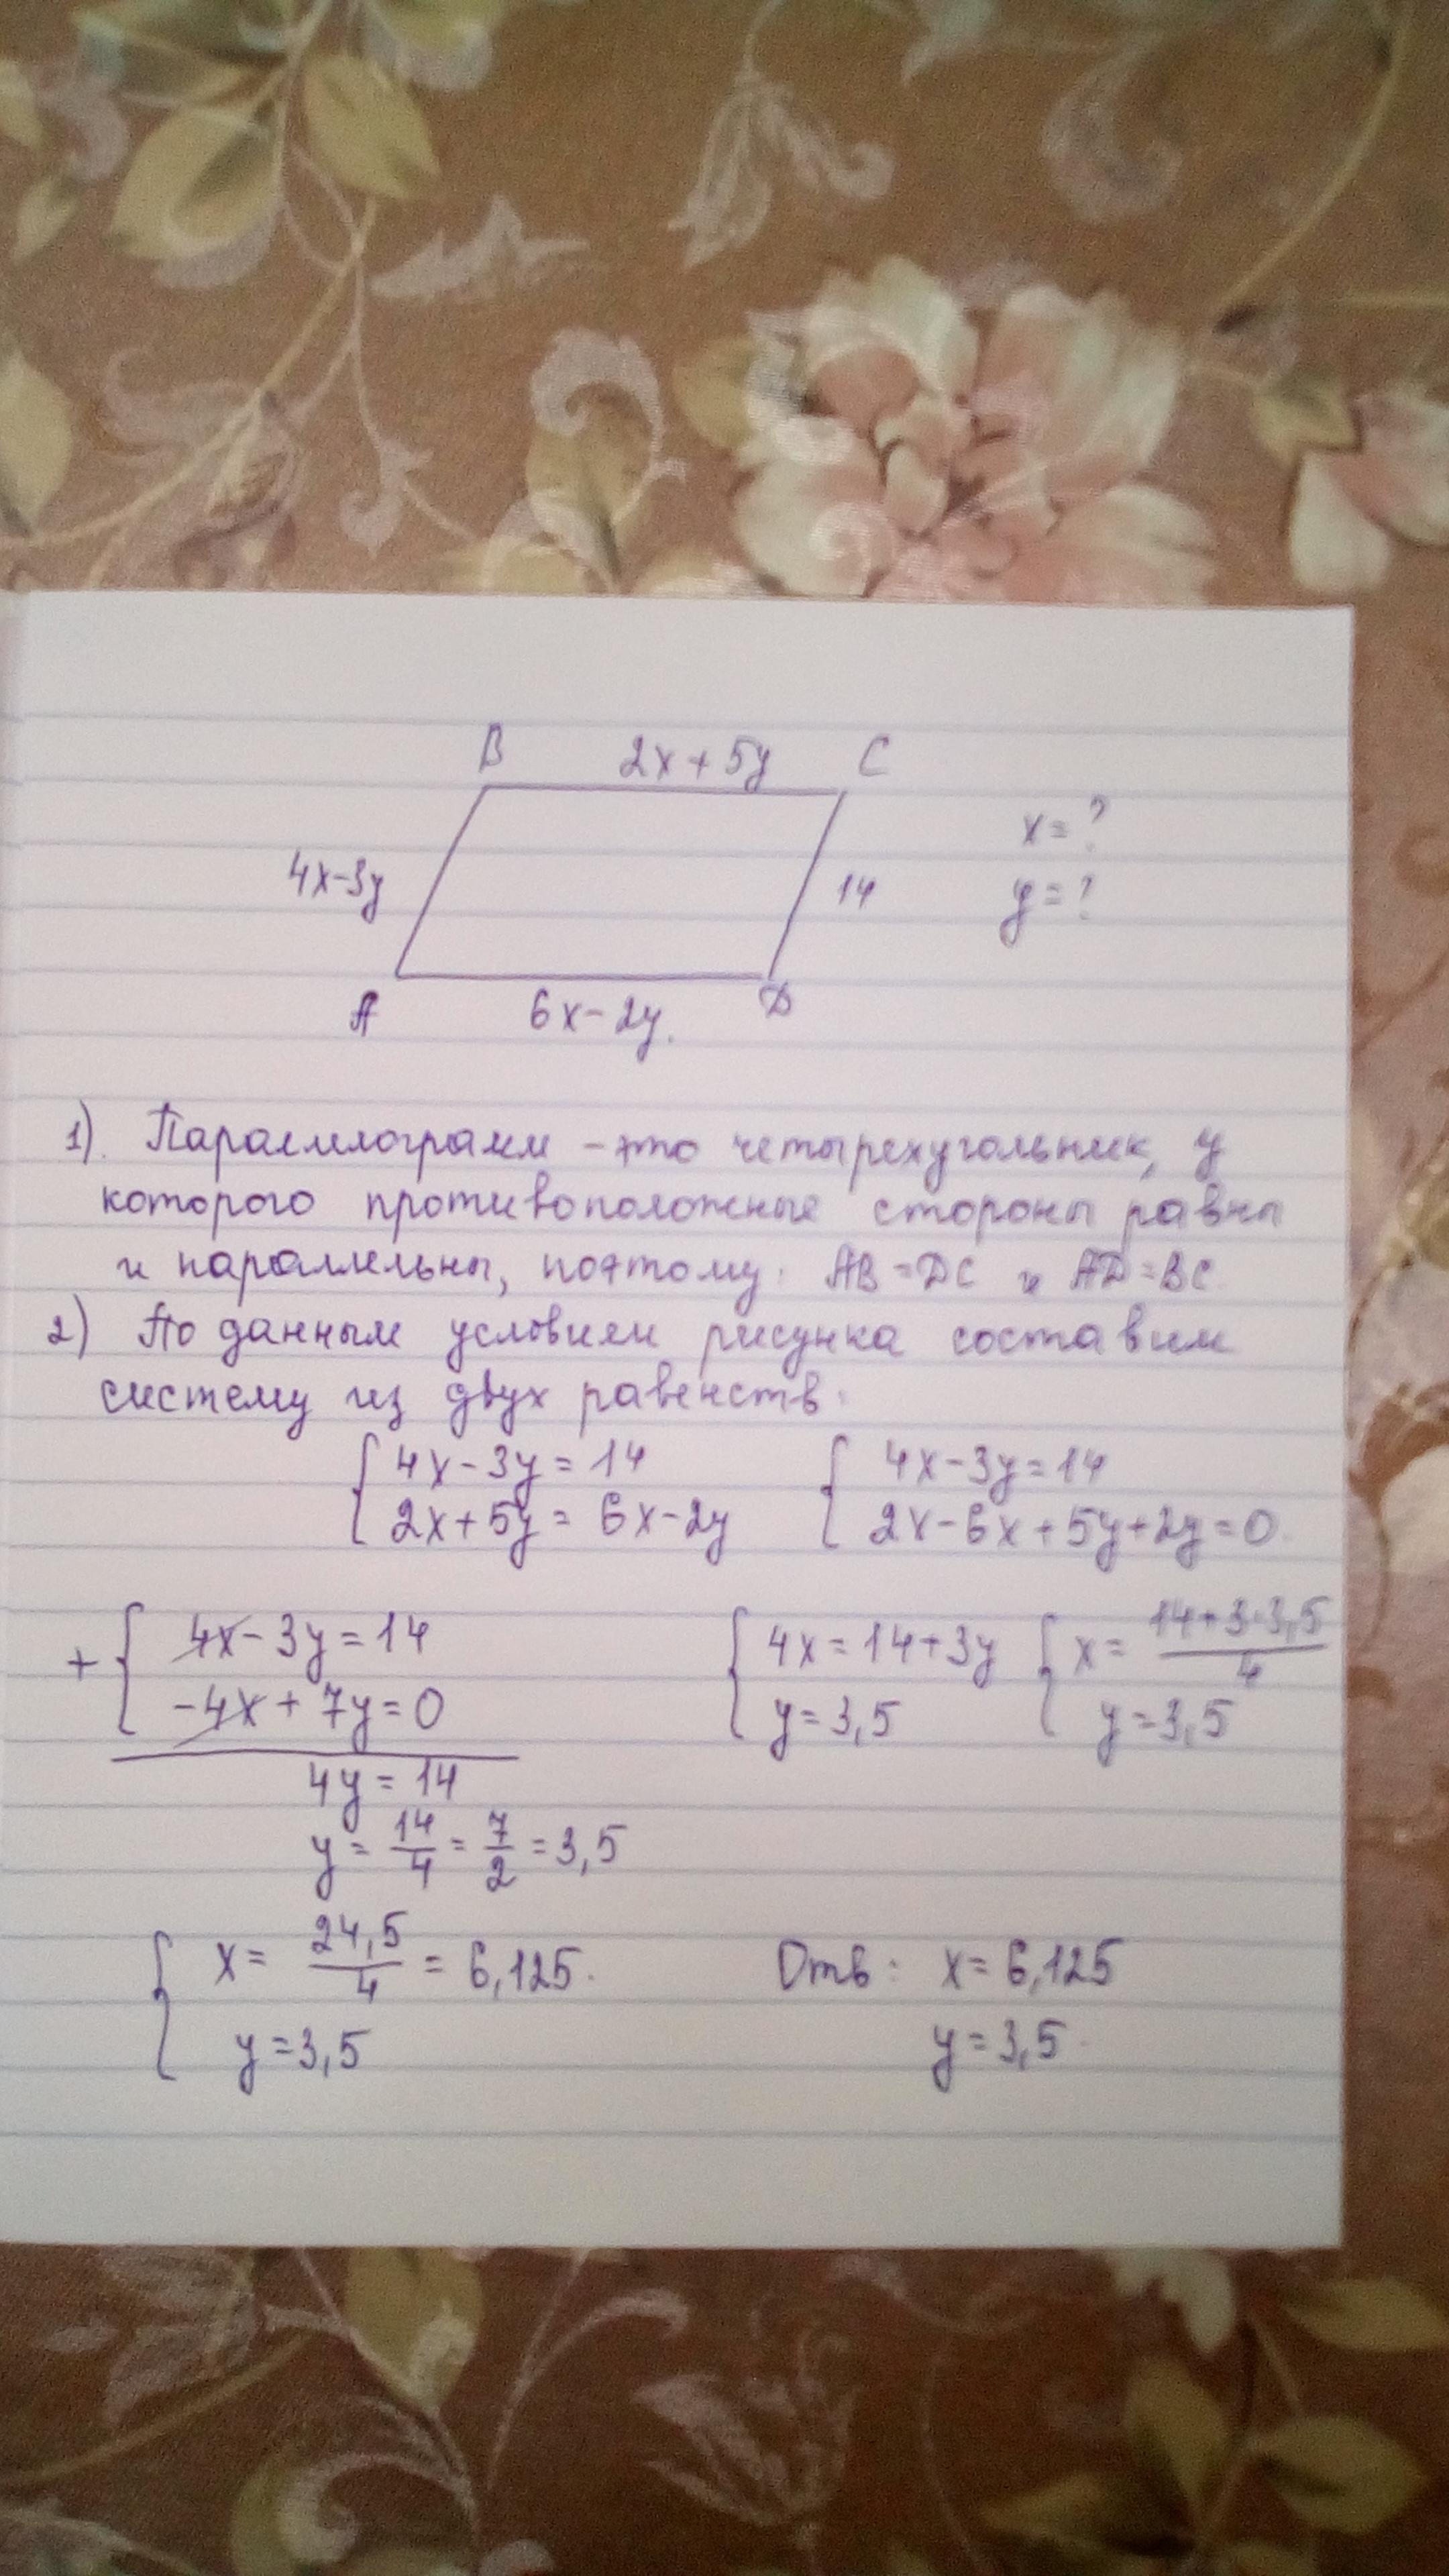 B 2x+5y C
x=?
4x-3y 14
y=?
A 6x-2y. D
1). Параллелограмм - это четырехугольник, у
которого противоположные стороны равны
и параллельны, поэтому: AB=DC и AD=BC.
2) По данным условием рисунка составим
систему из двух равенств:
{ 4x-3y=14 { 4x-3y=14
2x+5y=6x-2y 2x-6x+5y+2y=0.
+ { 4x-3y=14 { 4x=14+3y { x= 14+3·3,5 / 4
-4x+7y=0 y=3,5 y=3,5
4y=14
y= 14/4 = 7/2 =3,5
{ x= 24,5/4 = 6,125. Отв: x=6,125
y=3,5 y=3,5.